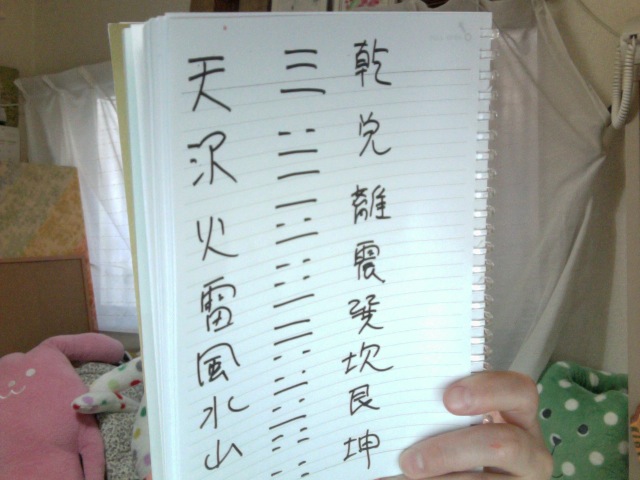 天 ☰ 乾
沢 ☱ 兌
火 ☲ 離
雷 ☳ 震
風 ☴ 巽
水 ☵ 坎
山 ☶ 艮
坤